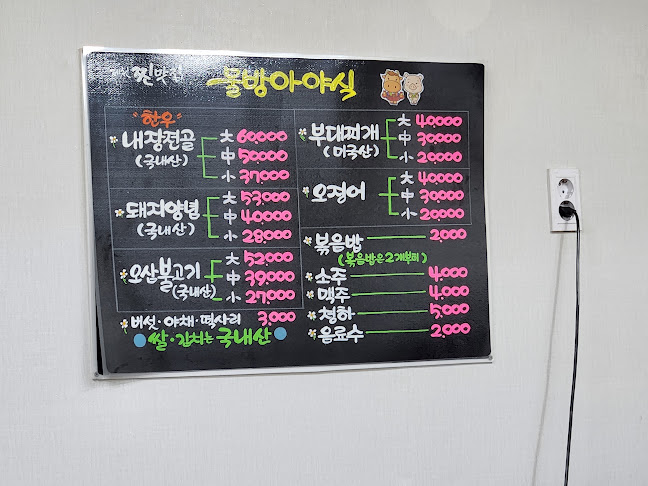 찐맛집
물방아야식
"한우"
내장전골 大 60,000
(국내산) 中 50,000
小 37,000
돼지양념 大 53,000
(국내산) 中 40,000
小 28,000
오삼불고기 大 52,000
(국내산) 中 39,000
小 27,000
버섯·야채·떡사리 3,000
쌀·김치는 국내산
부대찌개 大 40,000
(미국산) 中 30,000
小 20,000
오징어 大 40,000
中 30,000
小 20,000
볶음밥 2,000
(볶음밥은 2개부터)
소주 4,000
맥주 4,000
청하 5,000
음료수 2,000